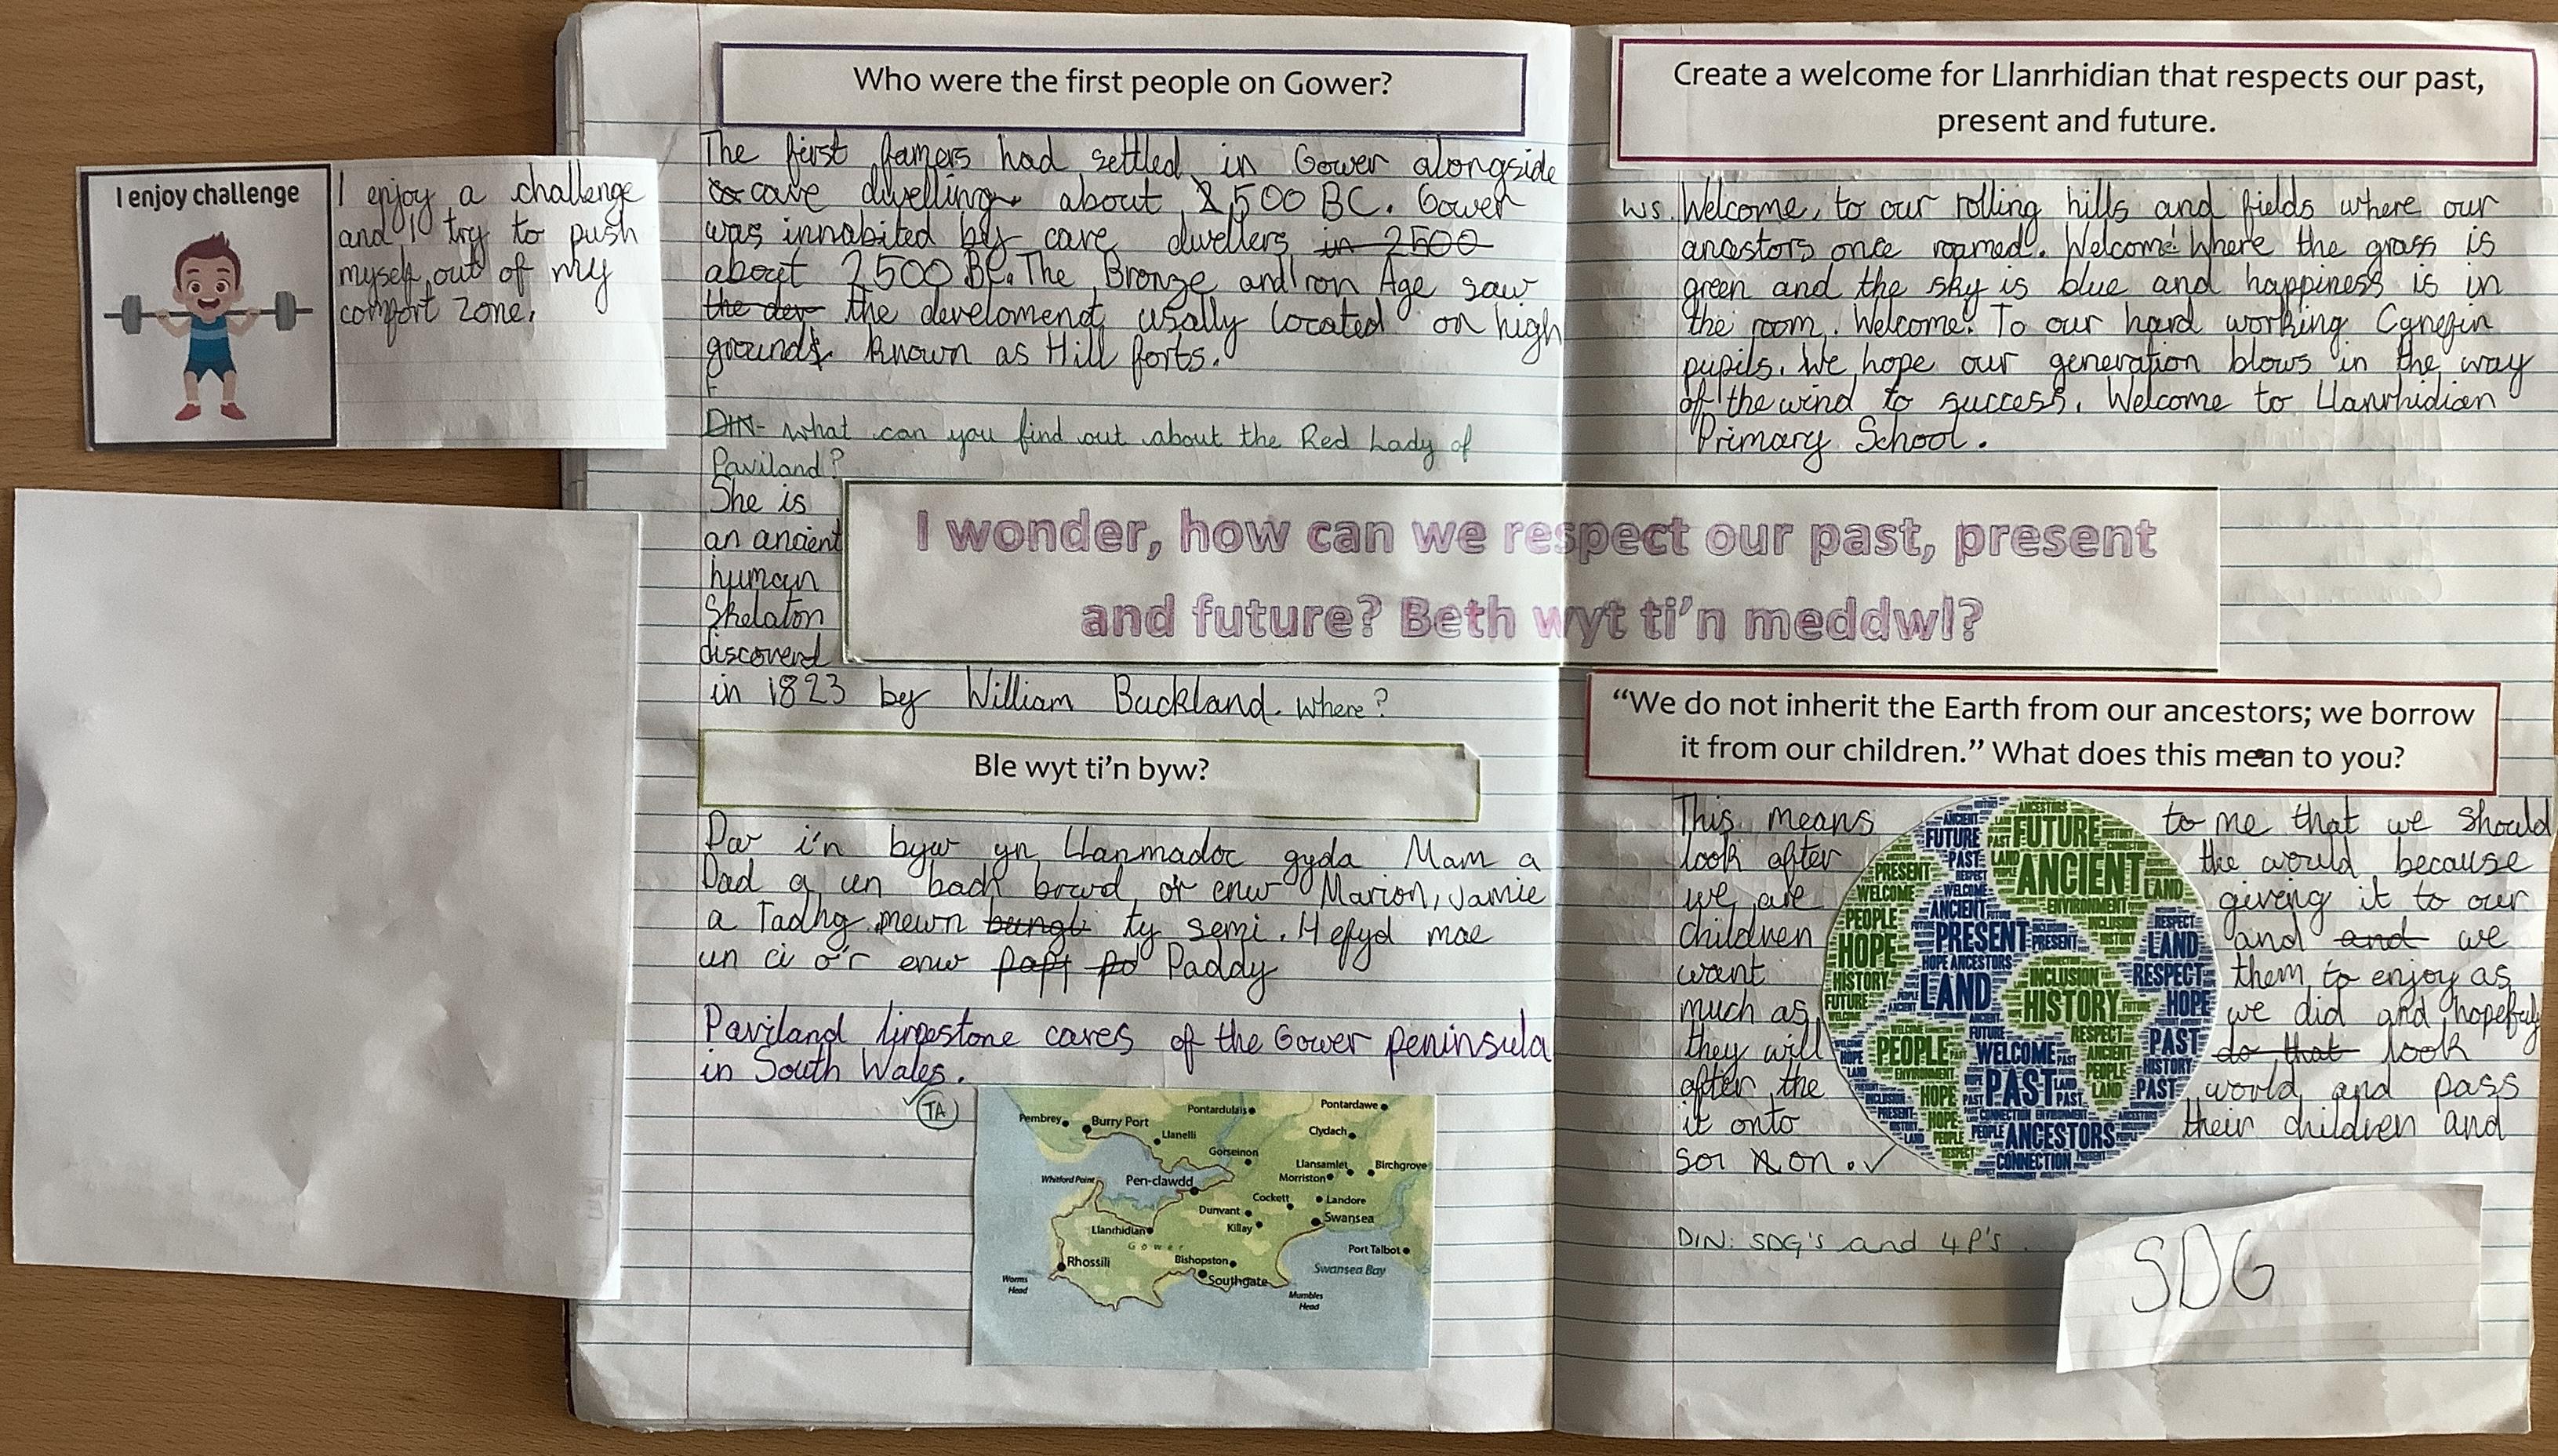 I enjoy challenge
I enjoy a challenge
and I try to push
myself out of my
comfort zone.
Who were the first people on Gower?
The first famers had settled in Gower alongside
cave dwelling about 2,500 BC. Gower
was innabited by cave dwellers in 2500
about 2,500 BC. The Bronze and Iron Age saw
the dev the develomenot usally located on high
grounds. known as Hill forts.
DIN- what can you find out about the Red Lady of
Paviland?
She is
an ancient
human
Skelaton
discoverd
in 1823 by William Buckland. Where?
I wonder, how can we respect our past, present
and future? Beth wyt ti'n meddwl?
Ble wyt ti'n byw?
Dw i'n byw yn Llanmadoc gyda Mam a
Dad a un bach brawd, o'r enw Marion, Jamie
a Tadhg mewn bungl ty semi. Hefyd mae
un ci o'r enw papt po Paddy
Paviland limestone caves of the Gower peninsula
in South Wales.
TA
Pembrey
Burry Port
Pontardulais
Pontardawe
Llanelli
Clydach
Gorseinon
Llansamlet
Birchgrove
Whitford Point
Pen-clawdd
Morriston
Cockett
Landore
Dunvant
Killay
Swansea
Llanrhidian
Gower
Rhossili
Bishopston
Port Talbot
Southgate
Swansea Bay
Worms
Head
Mumbles
Head
Create a welcome for Llanrhidian that respects our past,
present and future.
WS. Welcome, to our rolling hills and fields where our
ancestors once roamed. Welcome! Where the grass is
green and the sky is blue and happiness is in
the room. Welcome! To our hard working Cynefin
pupils. We hope our generation blows in the way
of the wind to success. Welcome to Llanrhidian
Primary School.
“We do not inherit the Earth from our ancestors; we borrow
it from our children.” What does this mean to you?
This means to me that we should
look after the would because
we are giveng it to our
children and and we
want them to enjoy as
much as we did and hopefuly
they will do that look
after the world and pass
it onto their children and
so on.
FUTURE
ANCIENT
PRESENT
HOPE
LAND
HISTORY
INCLUSION
RESPECT
PEOPLE
WELCOME
PAST
ANCESTORS
CONNECTION
ENVIRONMENT
DIN: SDG's and 4P's.
SDG